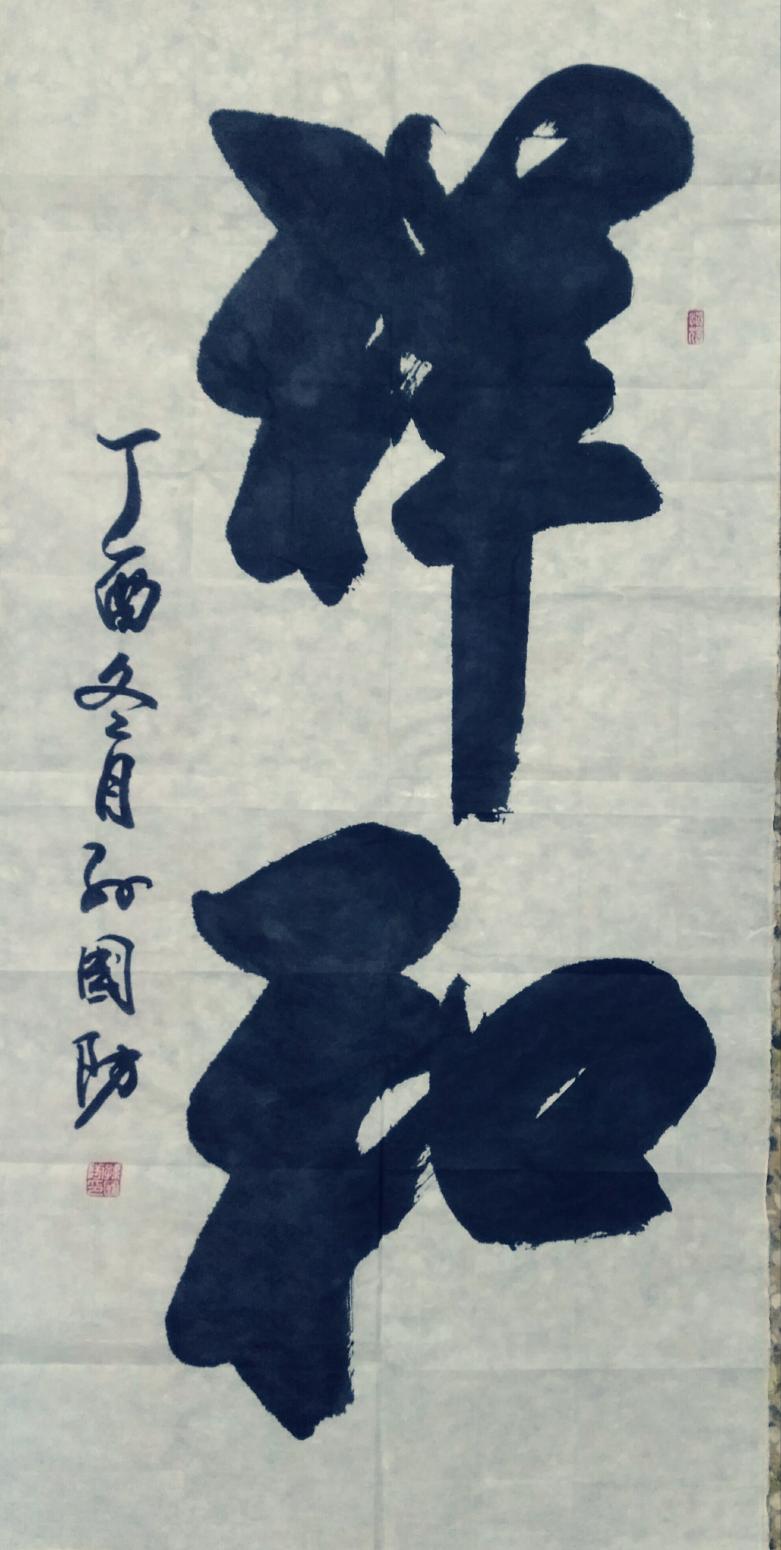 祥和
丁酉冬月孙國防